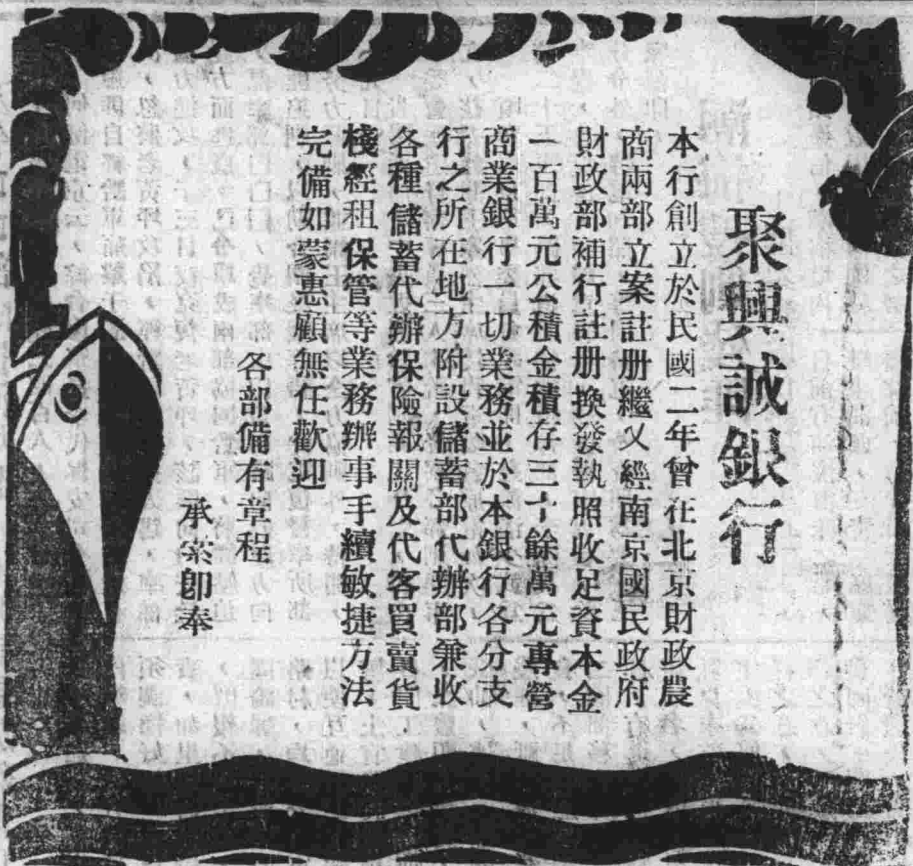 聚興誠銀行
本行創立於民國二年曾在北京財政農
商兩部立案註册繼又經南京國民政府
財政部補行註册換發執照收足資本金
一百萬元公積金積存三十餘萬元專營
商業銀行一切業務並於本銀行各分支
行之所在地方附設儲蓄部代辦部兼收
各種儲蓄代辦保險報關及代客買賣貨
棧經租保管等業務辦事手續敏捷方法
完備如蒙惠顧無任歡迎
各部備有章程
承索卽奉